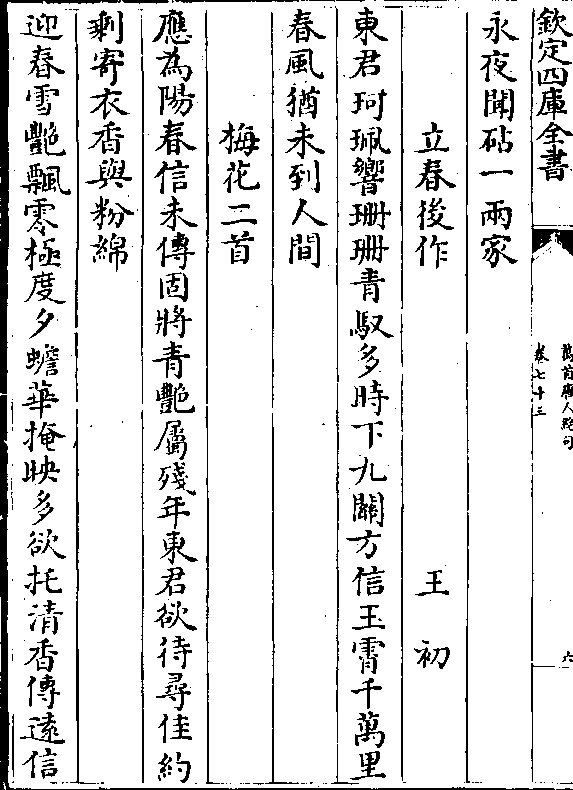 欽定四庫全書
萬首唐人絶句
卷七十三
六
永夜聞砧一兩家
立春後作 王初
東君珂珮響珊珊青馭多時下九關方信玉霄千萬里
春風猶未到人間
梅花二首
應為陽春信未傳固將青艷屬殘年東君欲待尋佳約
剩寄衣香與粉綿
迎春雪艷飄零極度夕蟾華掩映多欲托清香傳逺信